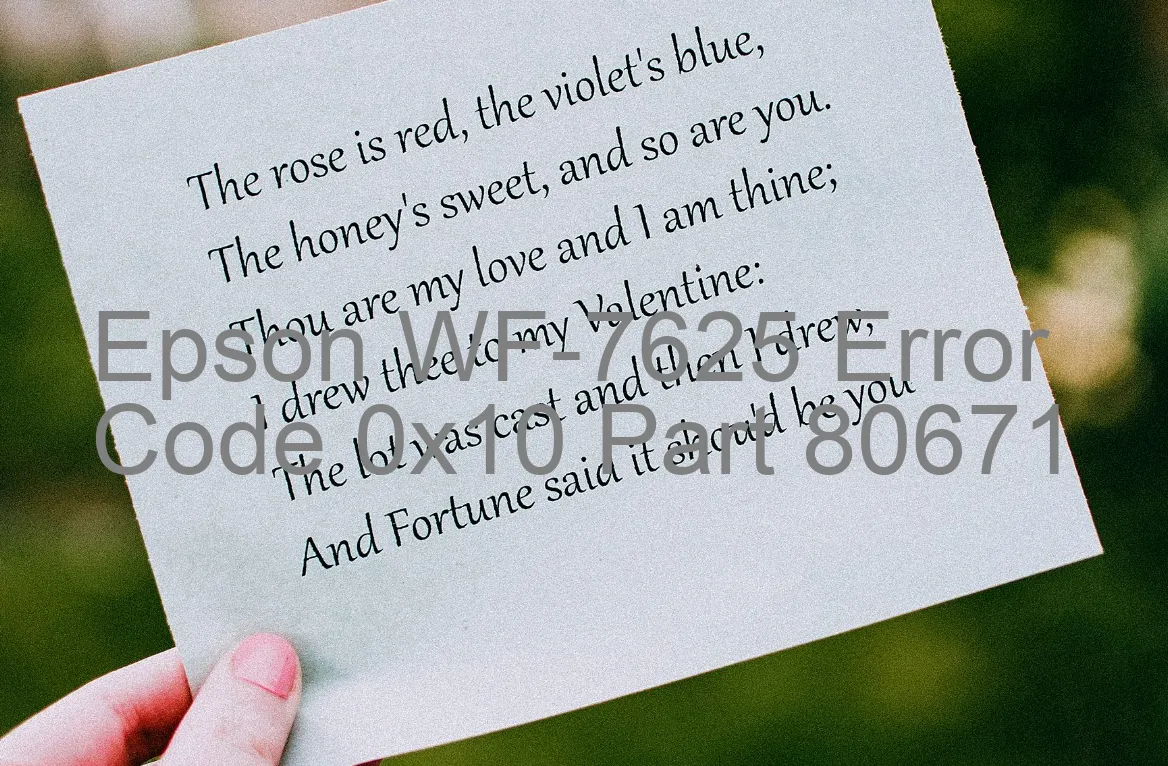 The rose is red, the violet's blue,
The honey's sweet, and so are you.
Thou are my love and I am thine;
I drew thee to my Valentine:
The lot was cast and then I drew,
And Fortune said it shou'd be you
Epson WF-7625 Error
Code 0x10 Part 80671